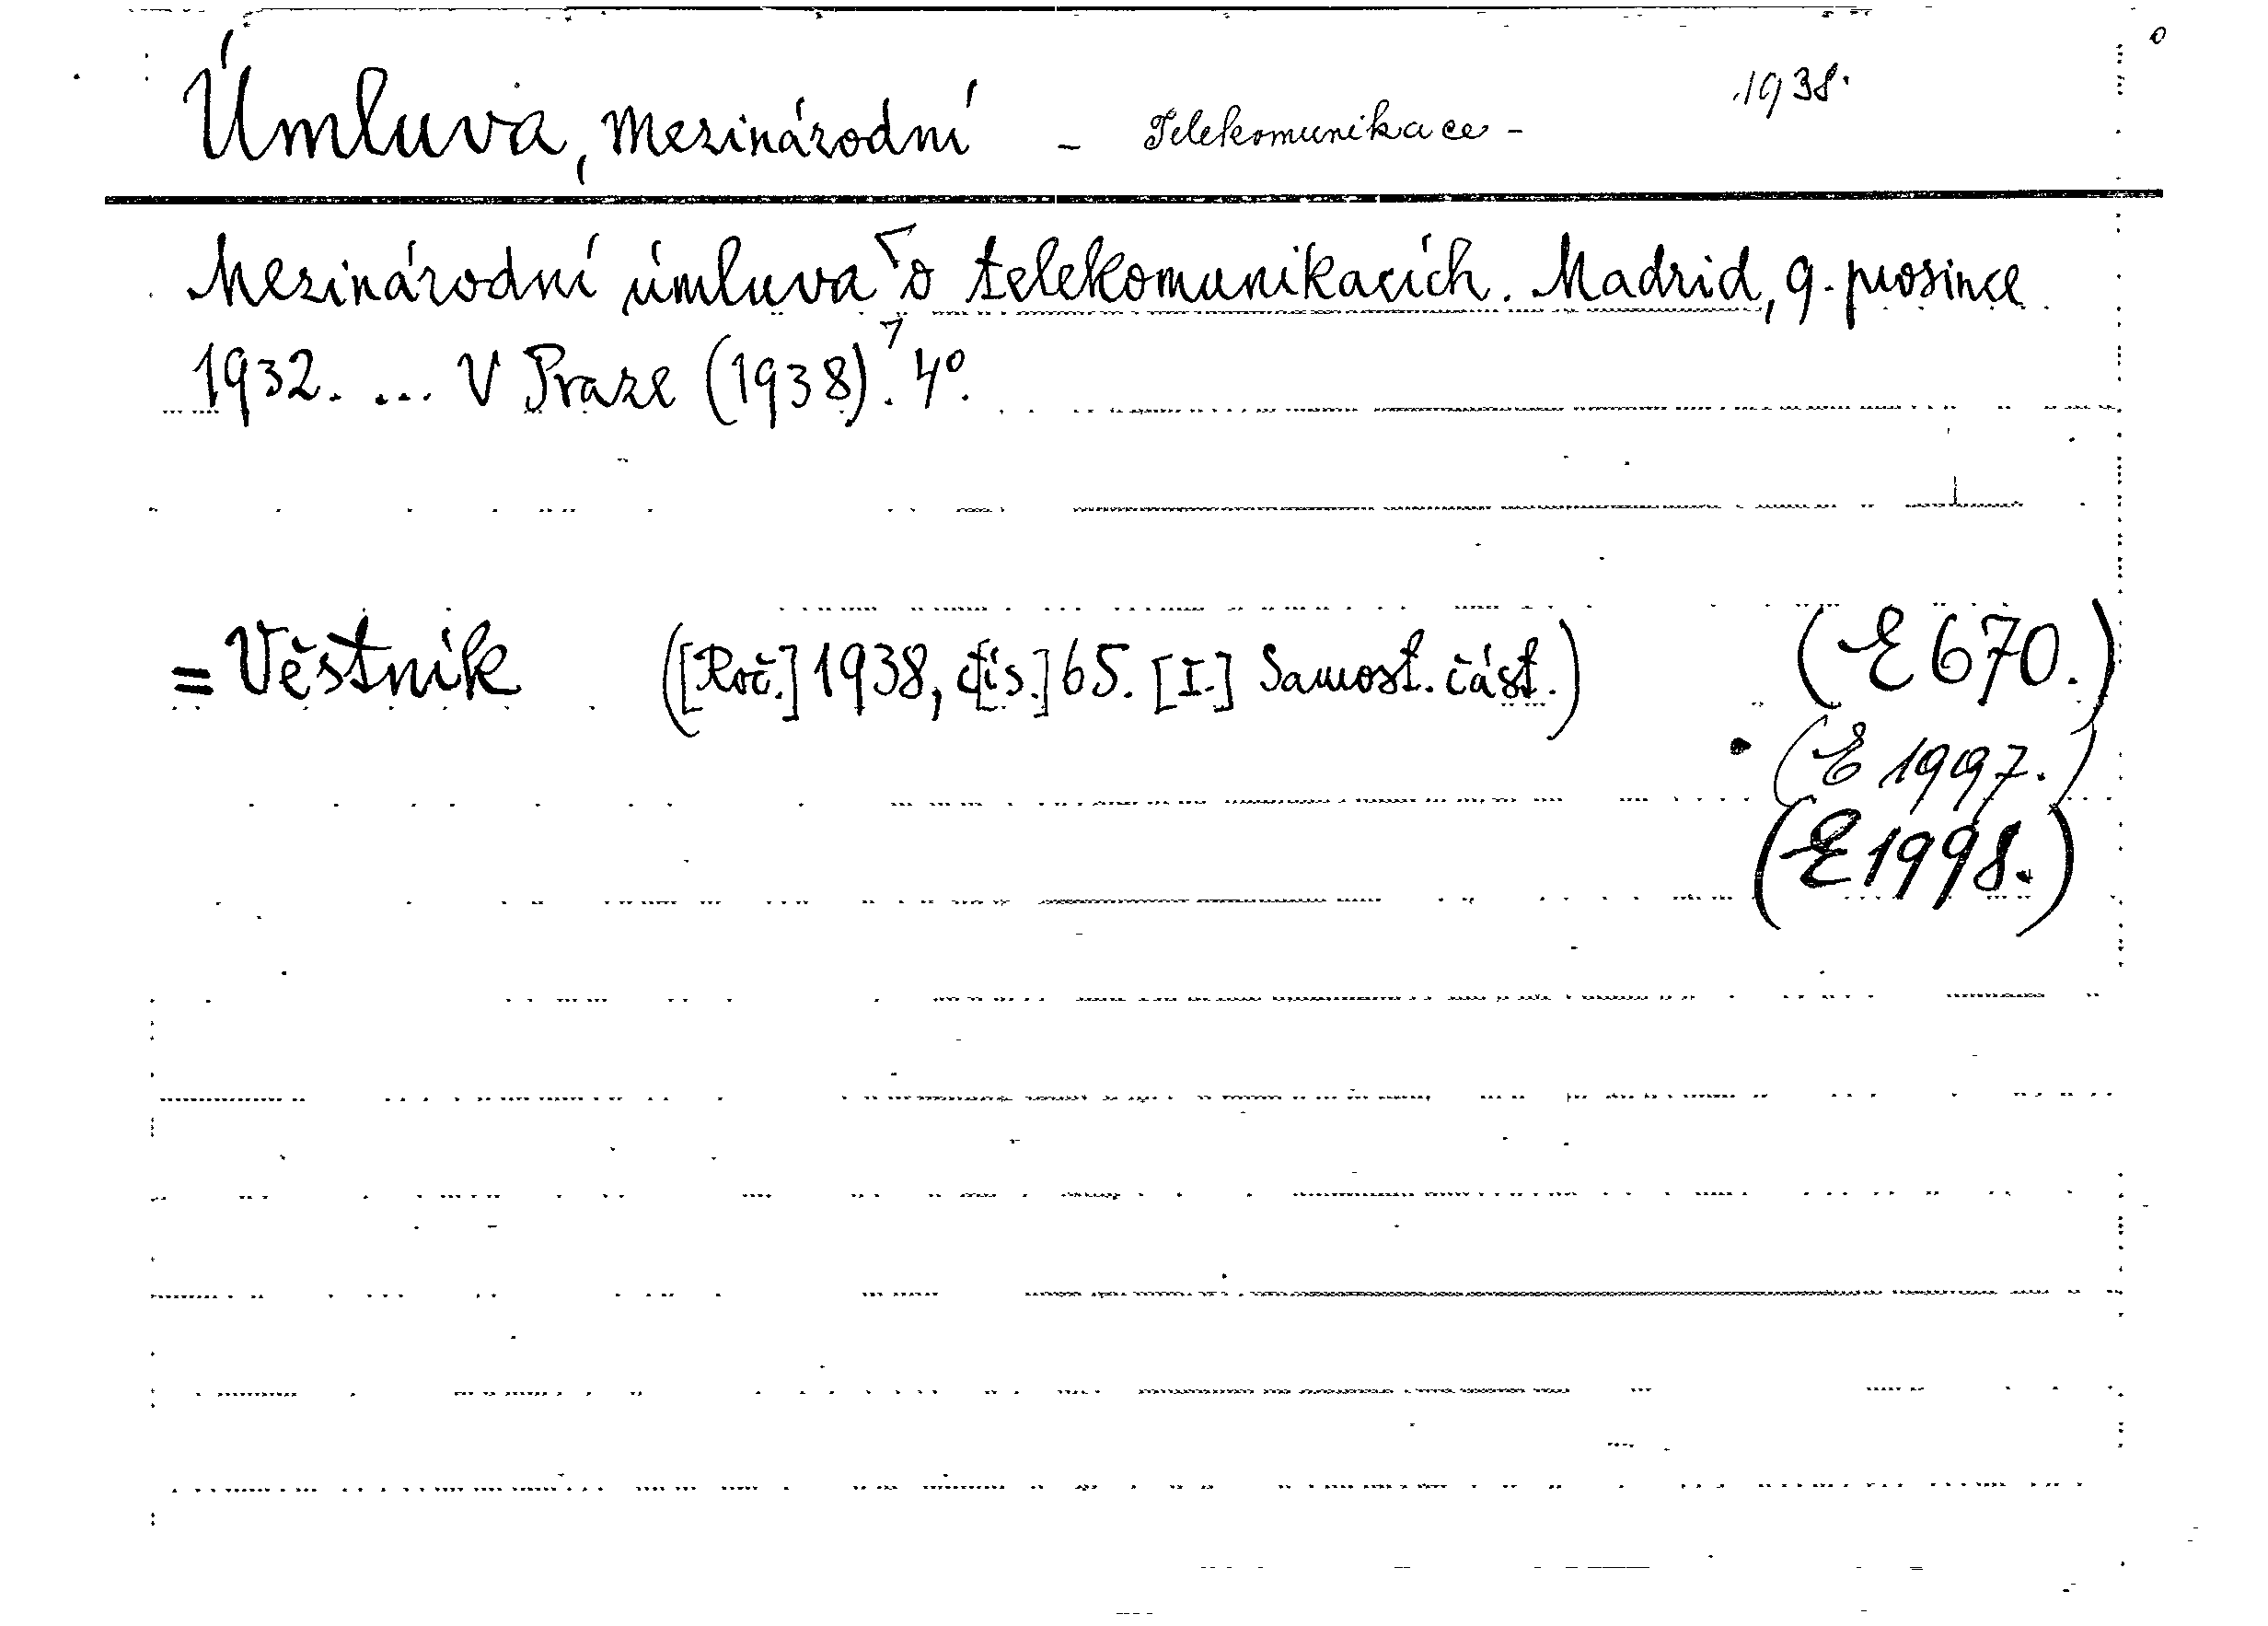 Úmluva, mezinárodní - Telekomunikace - 1938.
Mezinárodní úmluva o telekomunikacích. Madrid, 9. prosince
1932. ... V Praze (1938). 4°.
= Věstník ([Roč.] 1938, č[ís.] 65. [I.] Samost. část.) (E 670.)
(E 1997.)
(E 1998.)